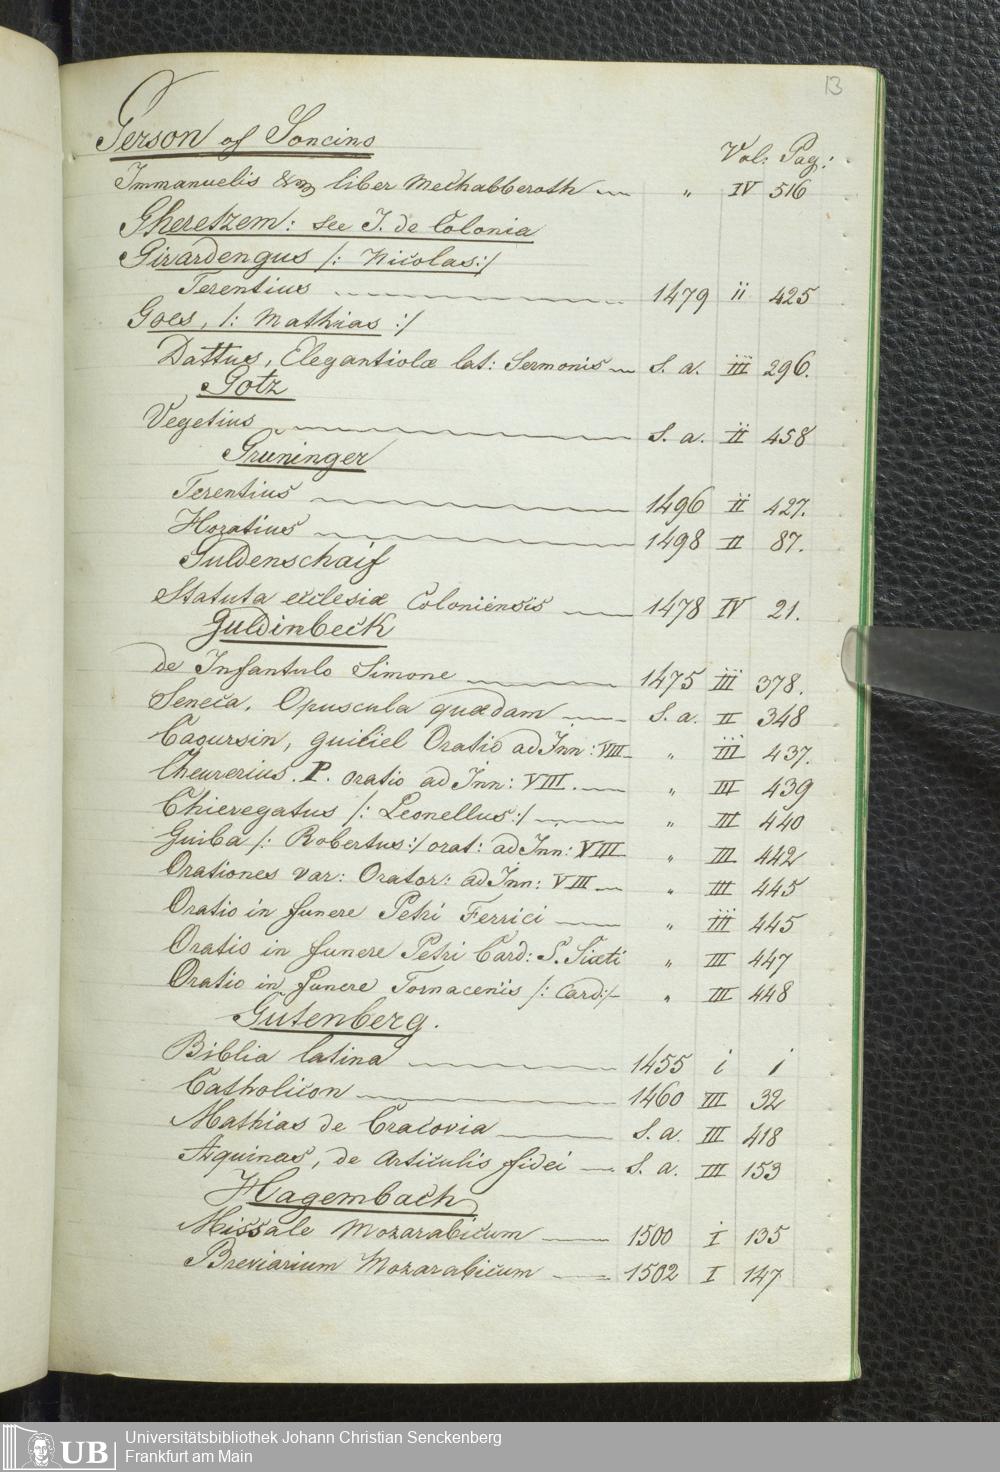 13
Gerson of Soncino
Vol: Pag:
Immanuelis liber Mechabberoth „ IV 516
Gheretzem: see J. de Colonia
Girardengus /: Nicolas:/
Terentius 1479 ii 425
Goes, /: Mathias :/
Dattus, Elegantiolæ lat: Sermonis S. a. iii 296.
Gotz
Vegetius S. a. ii 458
Gruninger
Terentius 1496 ii 427.
Horatius 1498 II 87.
Guldenschaif
Statuta ecclesiæ Coloniensis 1478 IV 21.
Guldinbeck
de Infantulo Simone 1475 iii 378.
Seneca, Opuscula quædam S. a. II 348
Caoursin, guiliel Oratio ad Inn: VIII „ iii 437.
Cheurerius. P. oratio ad Inn: VIII. „ III 439
Chieregatus /: Leonellus:/ „ III 440
Guiba /: Robertus:/ orat: ad Inn: VIII „ III 442
Orationes var: Orator: ad Inn: VIII „ III 445
Oratio in funere Petri Ferrici „ iii 445
Oratio in funere Petri Card: S. Sixti „ III 447
Oratio in funere Tornacenis /: Card:/ „ III 448
Gutenberg.
Biblia latina 1455 i 1
Catholicon 1460 III 32
Mathias de Cracovia S. a. III 418
Aquinas, de Articulis fidei S. a. III 153
Hagembach
Missale Mozarabicum 1500 i 135
Breviarium Mozarabicum 1502 I 147
UB
Universitätsbibliothek Johann Christian Senckenberg
Frankfurt am Main